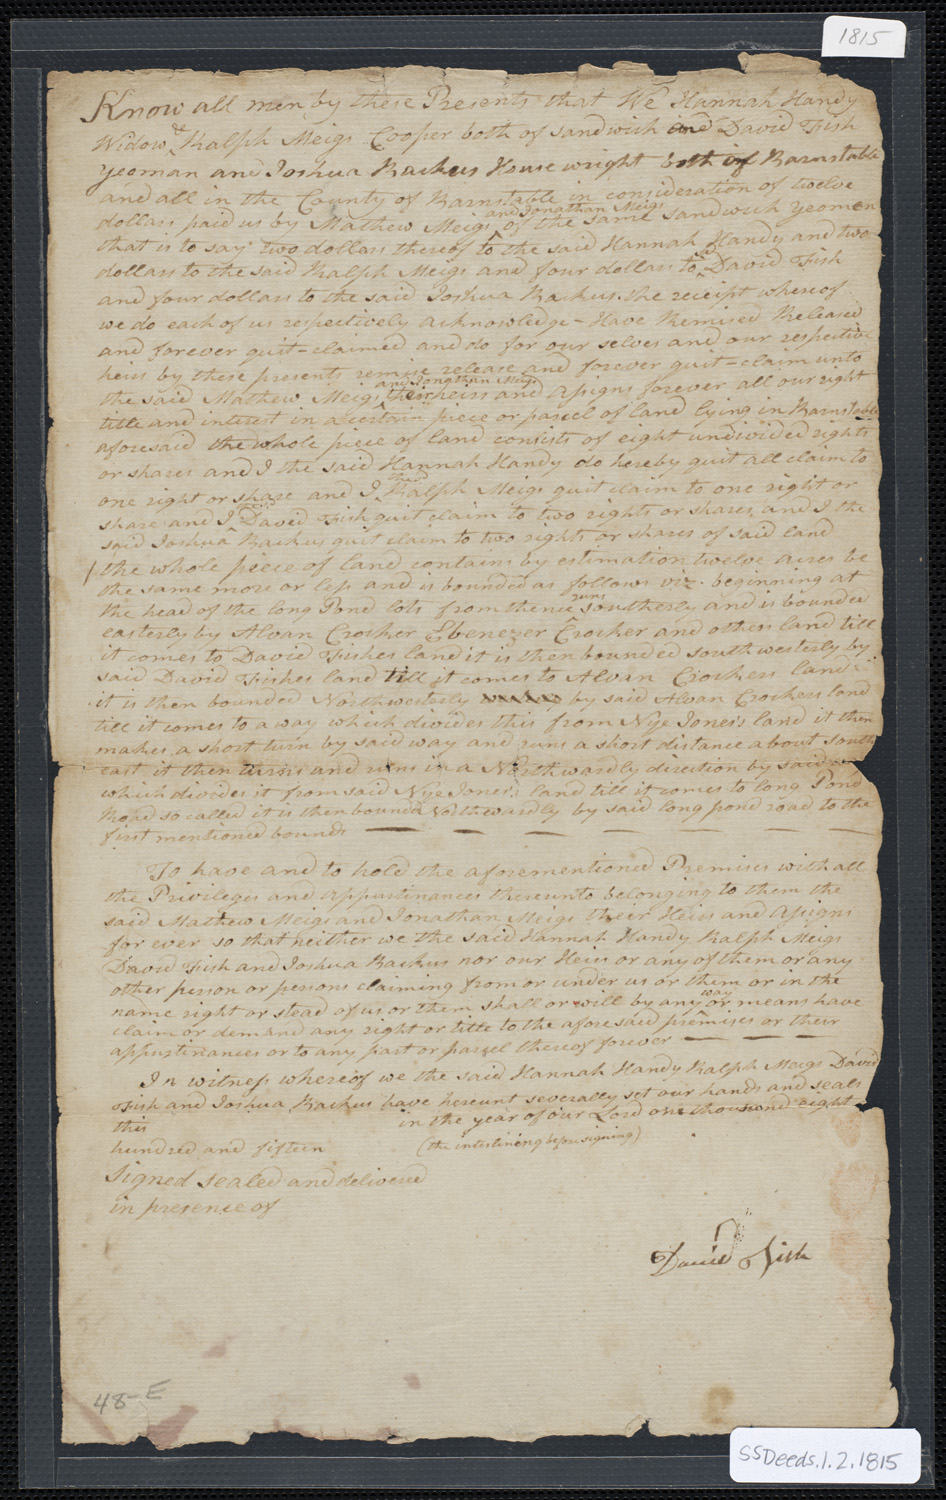 1815
Know all men by these Presents that We Hannah Handy
Widow & Ralph Meigs Cooper both of Sandwich and David Fish
yeoman and Joshua Backus House wright both of Barnstable
and all in the County of Barnstable in consideration of twelve
and Jonathan Meigs
dollars paid us by Mathew Meigs ^ of the same Sandwich Yeomen
that is to say two dollars thereof to the said Hannah Handy and two
dollars to the said Ralph Meigs and four dollars to David Fish
and four dollars to the said Joshua Backus. the receipt whereof
we do each of us respectively acknowledge – Have Remised Released
and forever quit-claimed and do for our selves and our respective
heirs by these presents remise release and forever quit-claim unto
and Jonathan Meigs
the said Mathew Meigs ^ their heirs and Assigns forever all our right
title and interest in a certain piece or parcel of land lying in Barnstable
aforesaid the whole piece of land consists of eight undivided rights
or shares and I the said Hannah Handy do hereby quit all claim to
one right or share and I ^ Ralph Meigs quit claim to one right or
share and I ^ David Fish quit claim to two rights or shares and I the
said Joshua Backus quit claim to two rights or shares of said land
the whole peece of land contains by estimation twelve acres be
the same more or less and is bounded as follows viz. beginning at
runs
the head of the long Pond lots from thence ^ southerly and is bounded
easterly by Alvan Crocker Ebenezer Crocker and others land till
it comes to David Fishes land it is then bounded southwesterly by
said David Fishes land till it comes to Alvan Crockers land
it is then bounded Northwesterly by said Alvan Crockers land
till it comes to a way which divides this from Nye Jones's land it then
makes a short turn by said way and runs a short distance about south
east it then turns and runs in a Northwardly direction by said
which divides it from said Nye Jones's land till it comes to long Pond
Road so called it is then bounded Northwardly by said long pond road to the
first mentioned bounds — — — — — —
To have and to hold the aforementioned Premises with all
the Privileges and appurtinances thereunto belonging to them the
said Mathew Meigs and Jonathan Meigs their Heirs and Assigns
for ever so that neither we the said Hannah Handy Ralph Meigs
David Fish and Joshua Backus nor our Heirs or any of them or any
other person or persons claiming from or under us or them or in the
way
name right or stead of us or them shall or will by any ^ or means have
claim or demand any right or title to the aforesaid premises or their
appurtinances or to any part or parcel thereof forever — — — —
In witness whereof we the said Hannah Handy Ralph Meigs David
Fish and Joshua Backus have hereunt severally set our hands and seals
this in the year of our Lord one thousand eight
hundred and fifteen (the interlineing before signing)
Signed sealed and delivered
in presence of
David Fish
48-E
SSDeeds.1.2.1815